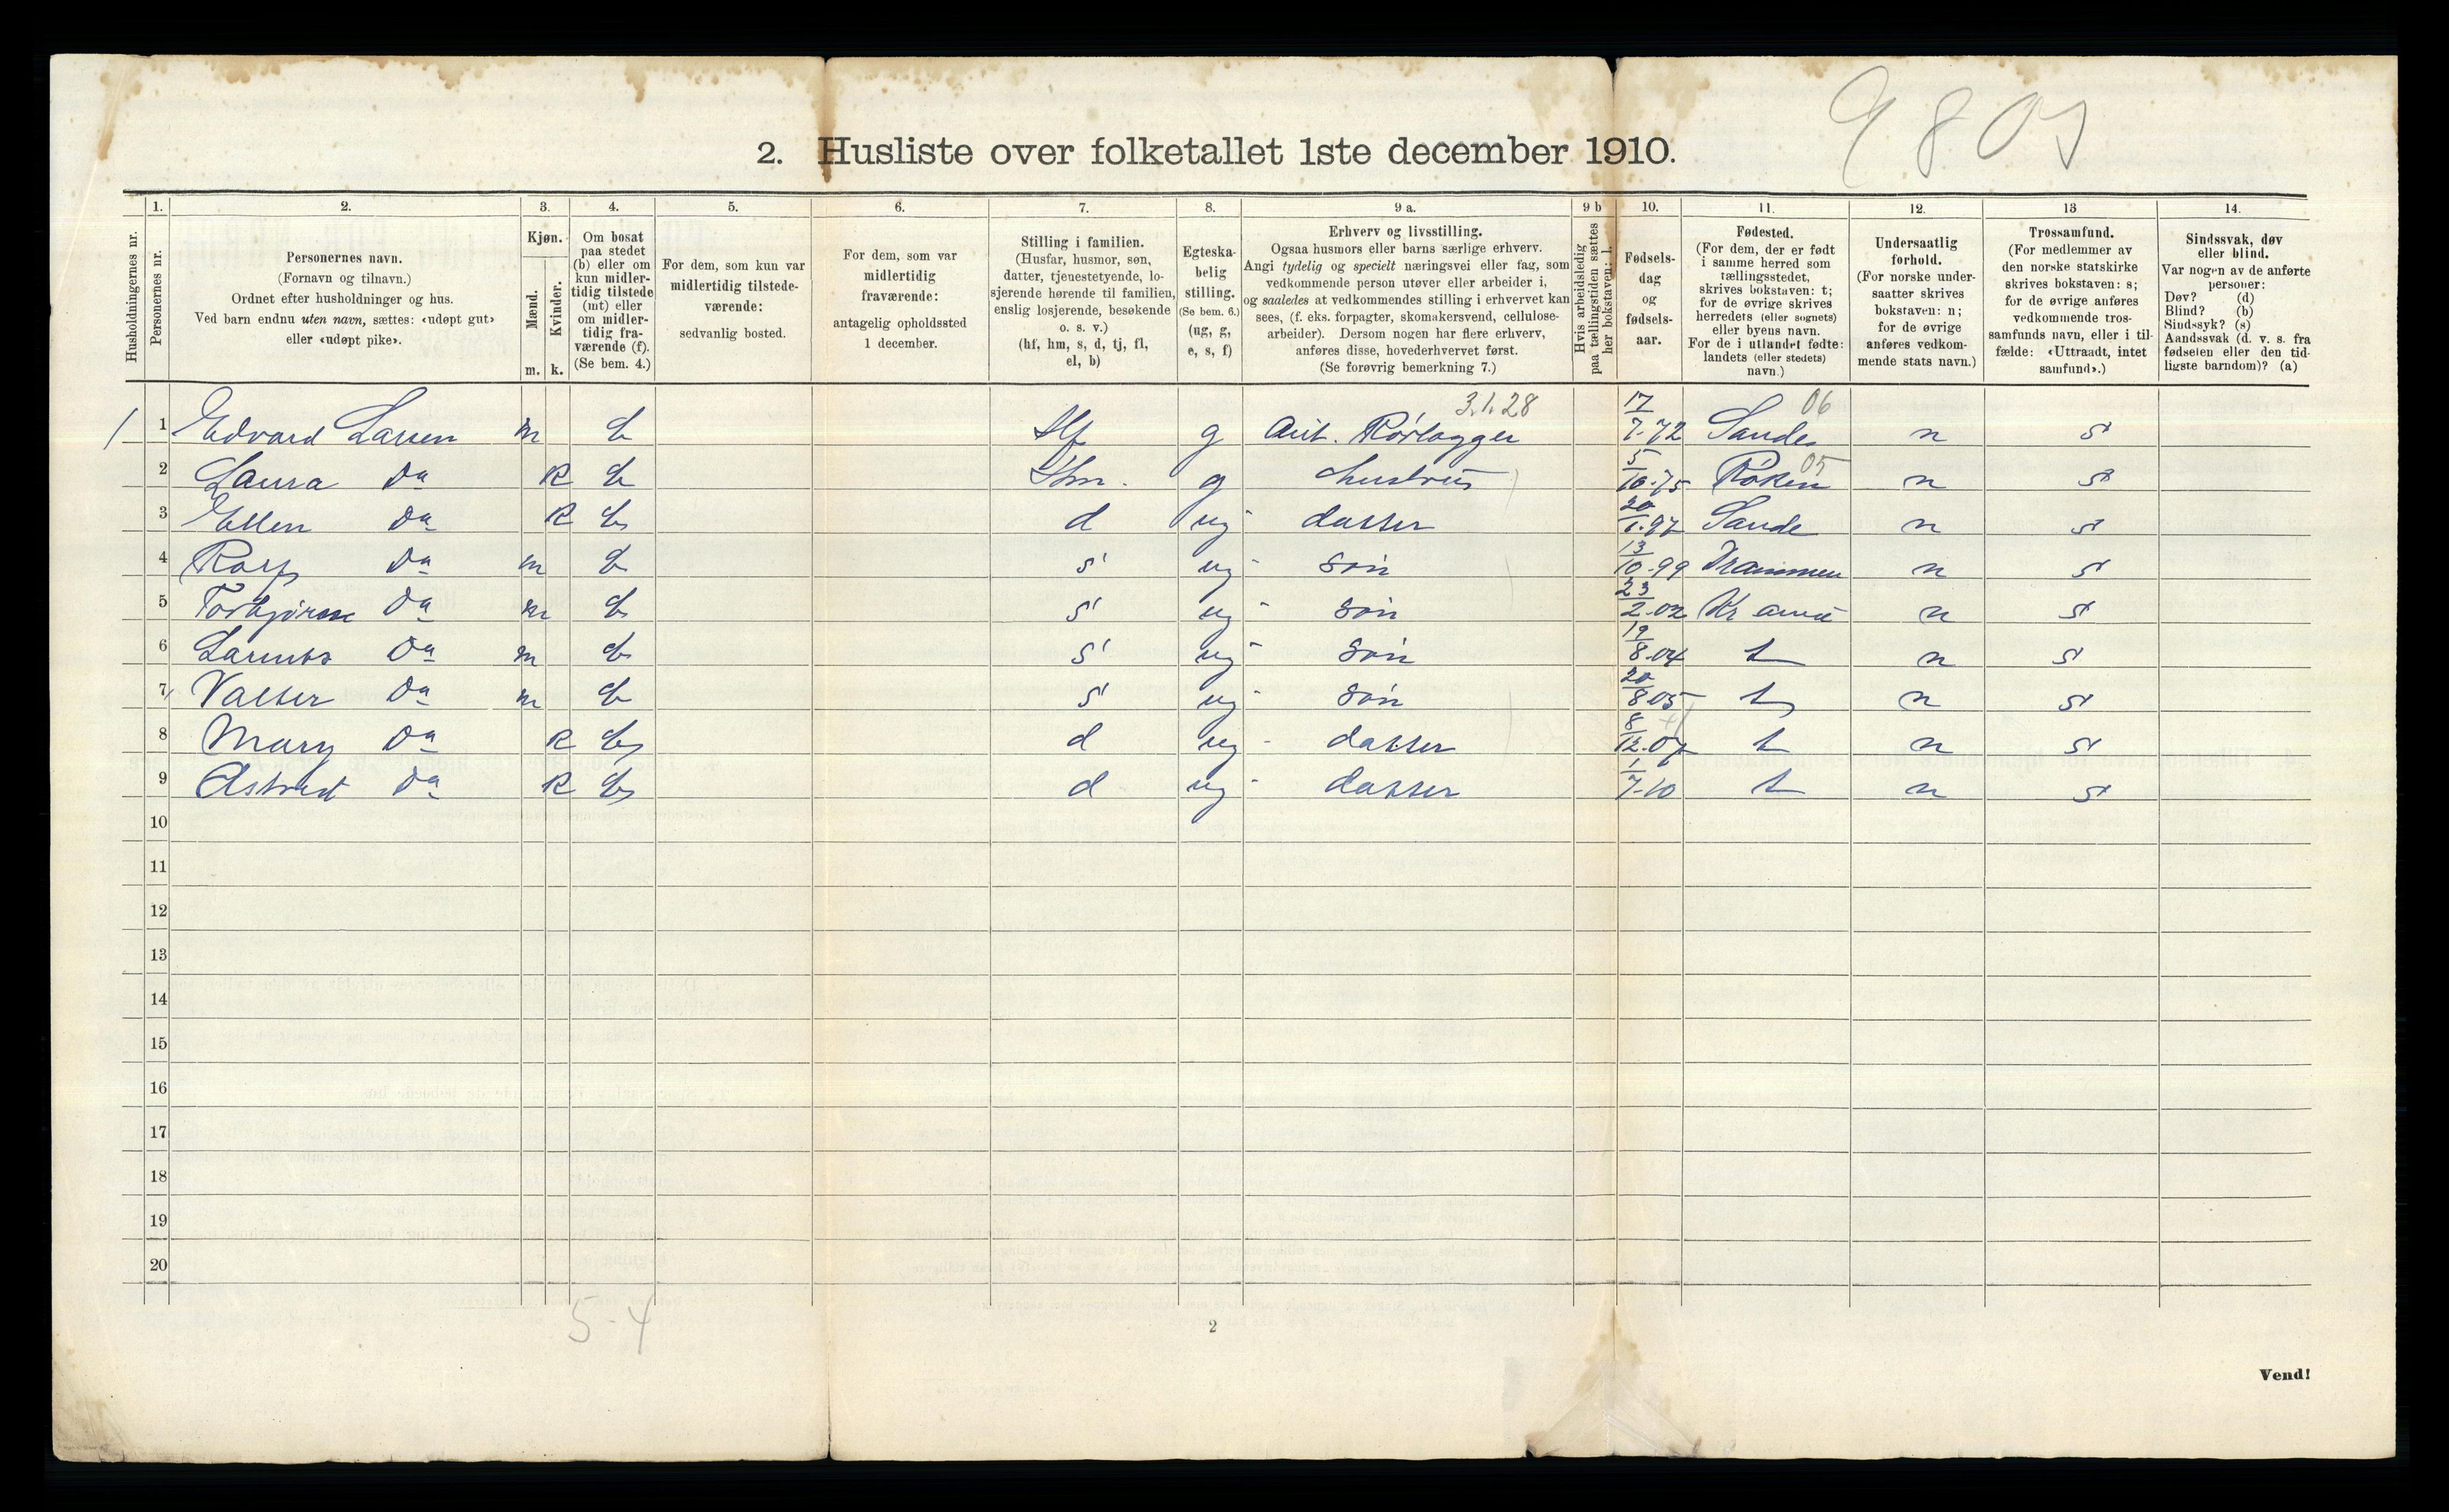 9801
2. Husliste over folketallet 1ste december 1910.
Husholdningernes nr.
1. Personernes nr.
2. Personernes navn.
(Fornavn og tilnavn.)
Ordnet efter husholdninger og hus.
Ved barn endnu uten navn, sættes: «udøpt gut»
eller «udøpt pike».
3. Kjøn.
Mænd. Kvinder.
m. k.
4. Om bosat
paa stedet
(b) eller om
kun midler-
tidig tilstede
(mt) eller
om midler-
tidig fra-
værende (f).
(Se bem. 4.)
5. For dem, som kun var
midlertidig tilstede-
værende:
sedvanlig bosted.
6. For dem, som var
midlertidig
fraværende:
antagelig opholdssted
1 december.
7. Stilling i familien.
(Husfar, husmor, søn,
datter, tjenestetyende, lo-
sjerende hørende til familien,
enslig losjerende, besøkende
o. s. v.)
(hf, hm, s, d, tj, fl,
el, b)
8. Egteska-
belig
stilling.
(Se bem. 6.)
(ug, g,
e, s, f)
9 a. Erhverv og livsstilling.
Ogsaa husmors eller barns særlige erhverv.
Angi tydelig og specielt næringsvei eller fag, som
vedkommende person utøver eller arbeider i,
og saaledes at vedkommendes stilling i erhvervet kan
sees, (f. eks. forpagter, skomakersvend, cellulose-
arbeider). Dersom nogen har flere erhverv,
anføres disse, hovederhvervet først.
(Se forøvrig bemerkning 7.)
9 b Hvis arbeidsledig
paa tællingstiden sættes
her bokstaven: l.
10. Fødsels-
dag
og
fødsels-
aar.
11. Fødested.
(For dem, der er født
i samme herred som
tællingsstedet,
skrives bokstaven: t;
for de øvrige skrives
herredets (eller sognets)
eller byens navn.
For de i utlandet fødte:
landets (eller stedets)
navn.)
12. Undersaatlig
forhold.
(For norske under-
saatter skrives
bokstaven: n;
for de øvrige
anføres vedkom-
mende stats navn.)
13 Trossamfund.
(For medlemmer av
den norske statskirke
skrives bokstaven: s;
for de øvrige anføres
vedkommende tros-
samfunds navn, eller i til-
fælde: «Uttraadt, intet
samfund».)
14. Sindssvak, døv
eller blind.
Var nogen av de anførte
personer:
Døv? (d)
Blind? (b)
Sindssyk? (s)
Aandssvak (d. v. s. fra
fødselen eller den tid-
ligste barndom)? (a)
3.1.28 06
1 1 Edvard Larsen m b Hf g Arb. Rørlægger 17/7-72 Sande n s
05
2 Laura Do k b Hm. g hustru 5/10-75 Røken n s
3 Ellen Do k b d ug datter 20/1-97 Sande n s
4 Rolf Do m b s ug søn 13/10-99 Drammen n s
5 Torbjørn Do m b s ug søn 23/2-02 Kr ania n s
6 Do m b s ug søn 19/8-04 t n s
7 Valter Do m b s ug søn 20/8 05 t n s
8 Mary Do k b d ug datter 8/12-07 t n s
9 Astrid Do k b d ug datter 1/7-10 t n s
10
11
12
13
14
15
16
17
18
19
20
5-4
2
Vend!